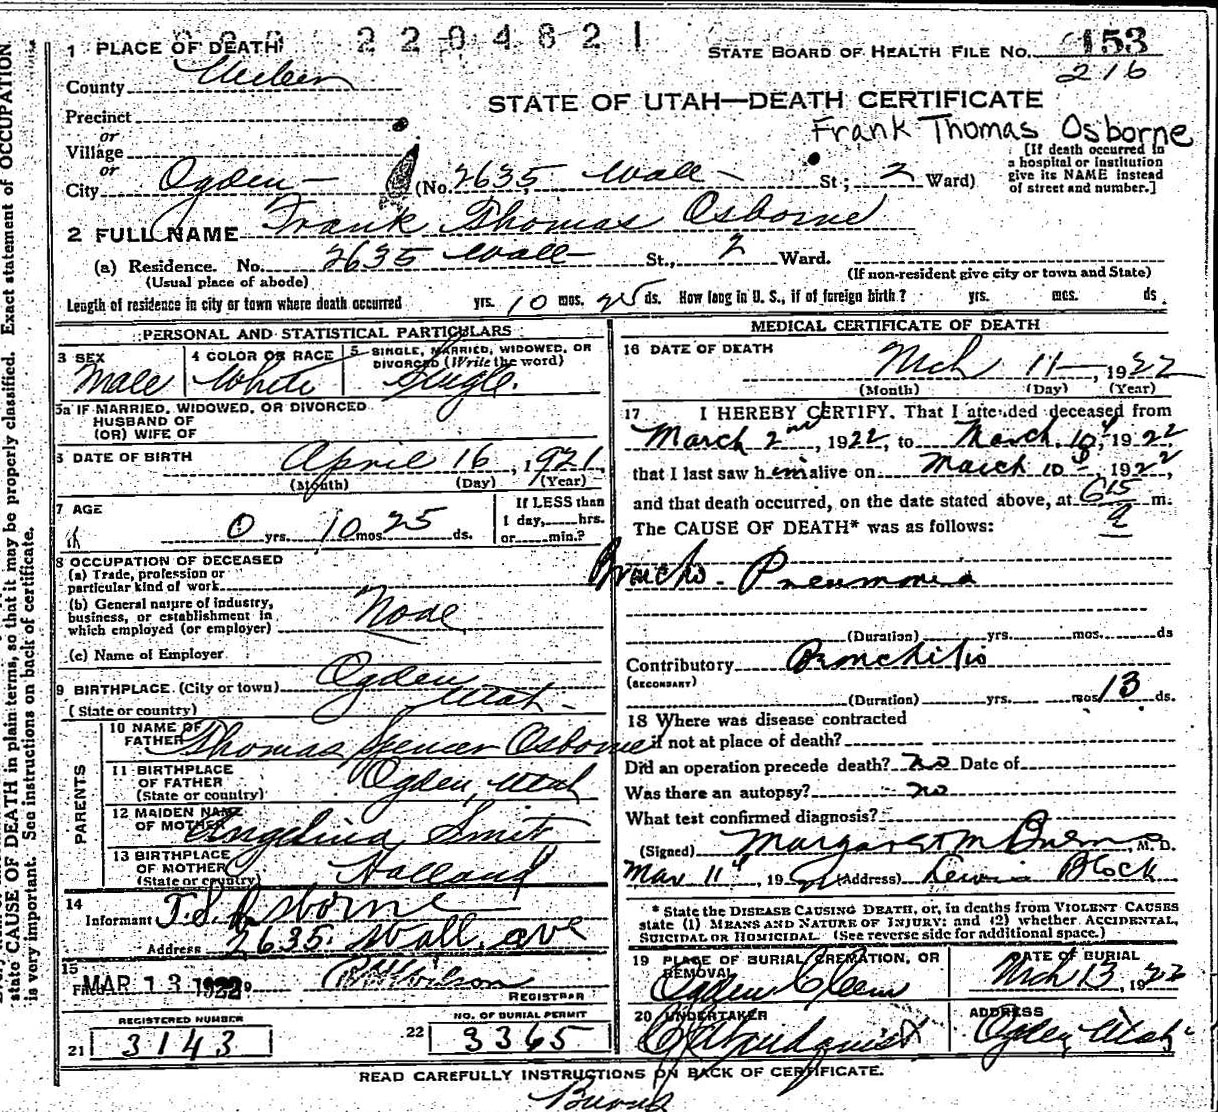 2204821
1 PLACE OF DEATH
STATE BOARD OF HEALTH FILE NO. 153
216
County Weber
STATE OF UTAH—DEATH CERTIFICATE
Precinct
Frank Thomas Osborne
or
Village
or
City Ogden (No. 2635 Wall St; 2 Ward)
[If death occurred in
a hospital or institution
give its NAME instead
of street and number.]
2 FULL NAME Frank Thomas Osborne
(a) Residence. No. 2635 Wall St., 2 Ward.
(Usual place of abode)
(If non-resident give city or town and State)
Length of residence in city or town where death occurred yrs. 10 mos. 25 ds. How long in U. S., if of foreign birth? yrs. mos. ds
PERSONAL AND STATISTICAL PARTICULARS
3 SEX Male
4 COLOR OR RACE White
5 SINGLE, MARRIED, WIDOWED, OR
DIVORCED (Write the word)
Single.
5a IF MARRIED, WIDOWED, OR DIVORCED
HUSBAND OF
(OR) WIFE OF
6 DATE OF BIRTH April 16, 1921
(Month) (Day) (Year)
7 AGE
0 yrs. 10 mos. 25 ds.
If LESS than
1 day, hrs.
or min.?
8 OCCUPATION OF DECEASED
(a) Trade, profession or
particular kind of work
(b) General nature of industry,
business, or establishment in
which employed (or employer) None
(c) Name of Employer
9 BIRTHPLACE (City or town) Ogden
(State or country) Utah
PARENTS
10 NAME OF
FATHER Thomas Spencer Osborne
11 BIRTHPLACE
OF FATHER
(State or country) Ogden, Utah
12 MAIDEN NAME
OF MOTHER Angelina Smit
13 BIRTHPLACE
OF MOTHER
(State or country) Holland
14
Informant T. S. Osborne
Address 2635 Wall ave
15
Filed MAR 13 1922
REGISTRAR
REGISTERED NUMBER
21 3143
NO. OF BURIAL PERMIT
22 3365
MEDICAL CERTIFICATE OF DEATH
16 DATE OF DEATH
Mch 11, 1922
(Month) (Day) (Year)
17 I HEREBY CERTIFY, That I attended deceased from
March 2nd, 1922, to March 10, 1922
that I last saw him alive on March 10, 1922,
and that death occurred, on the date stated above, at 6 15 a m.
The CAUSE OF DEATH* was as follows:
Broncho-Pneumonia
(Duration) yrs. mos. ds
Contributory Bronchitis
(SECONDARY)
(Duration) yrs. mos 13 ds.
18 Where was disease contracted
if not at place of death?
Did an operation precede death? no Date of
Was there an autopsy? no
What test confirmed diagnosis?
(Signed) Margaret M , M. D.
Mar 11, 19 (Address) Lewis Block
* State the DISEASE CAUSING DEATH, or, in deaths from VIOLENT CAUSES
state (1) MEANS AND NATURE OF INJURY; and (2) whether ACCIDENTAL,
SUICIDAL OR HOMICIDAL. (See reverse side for additional space.)
19 PLACE OF BURIAL, CREMATION, OR
REMOVAL
Ogden
DATE OF BURIAL
Mch 13, 1922
20 UNDERTAKER
ADDRESS
Ogden Utah
READ CAREFULLY INSTRUCTIONS ON BACK OF CERTIFICATE.
state CAUSE OF DEATH in plain terms, so that it may be properly classified. Exact statement of OCCUPATION
is very important. See instructions on back of certificate.